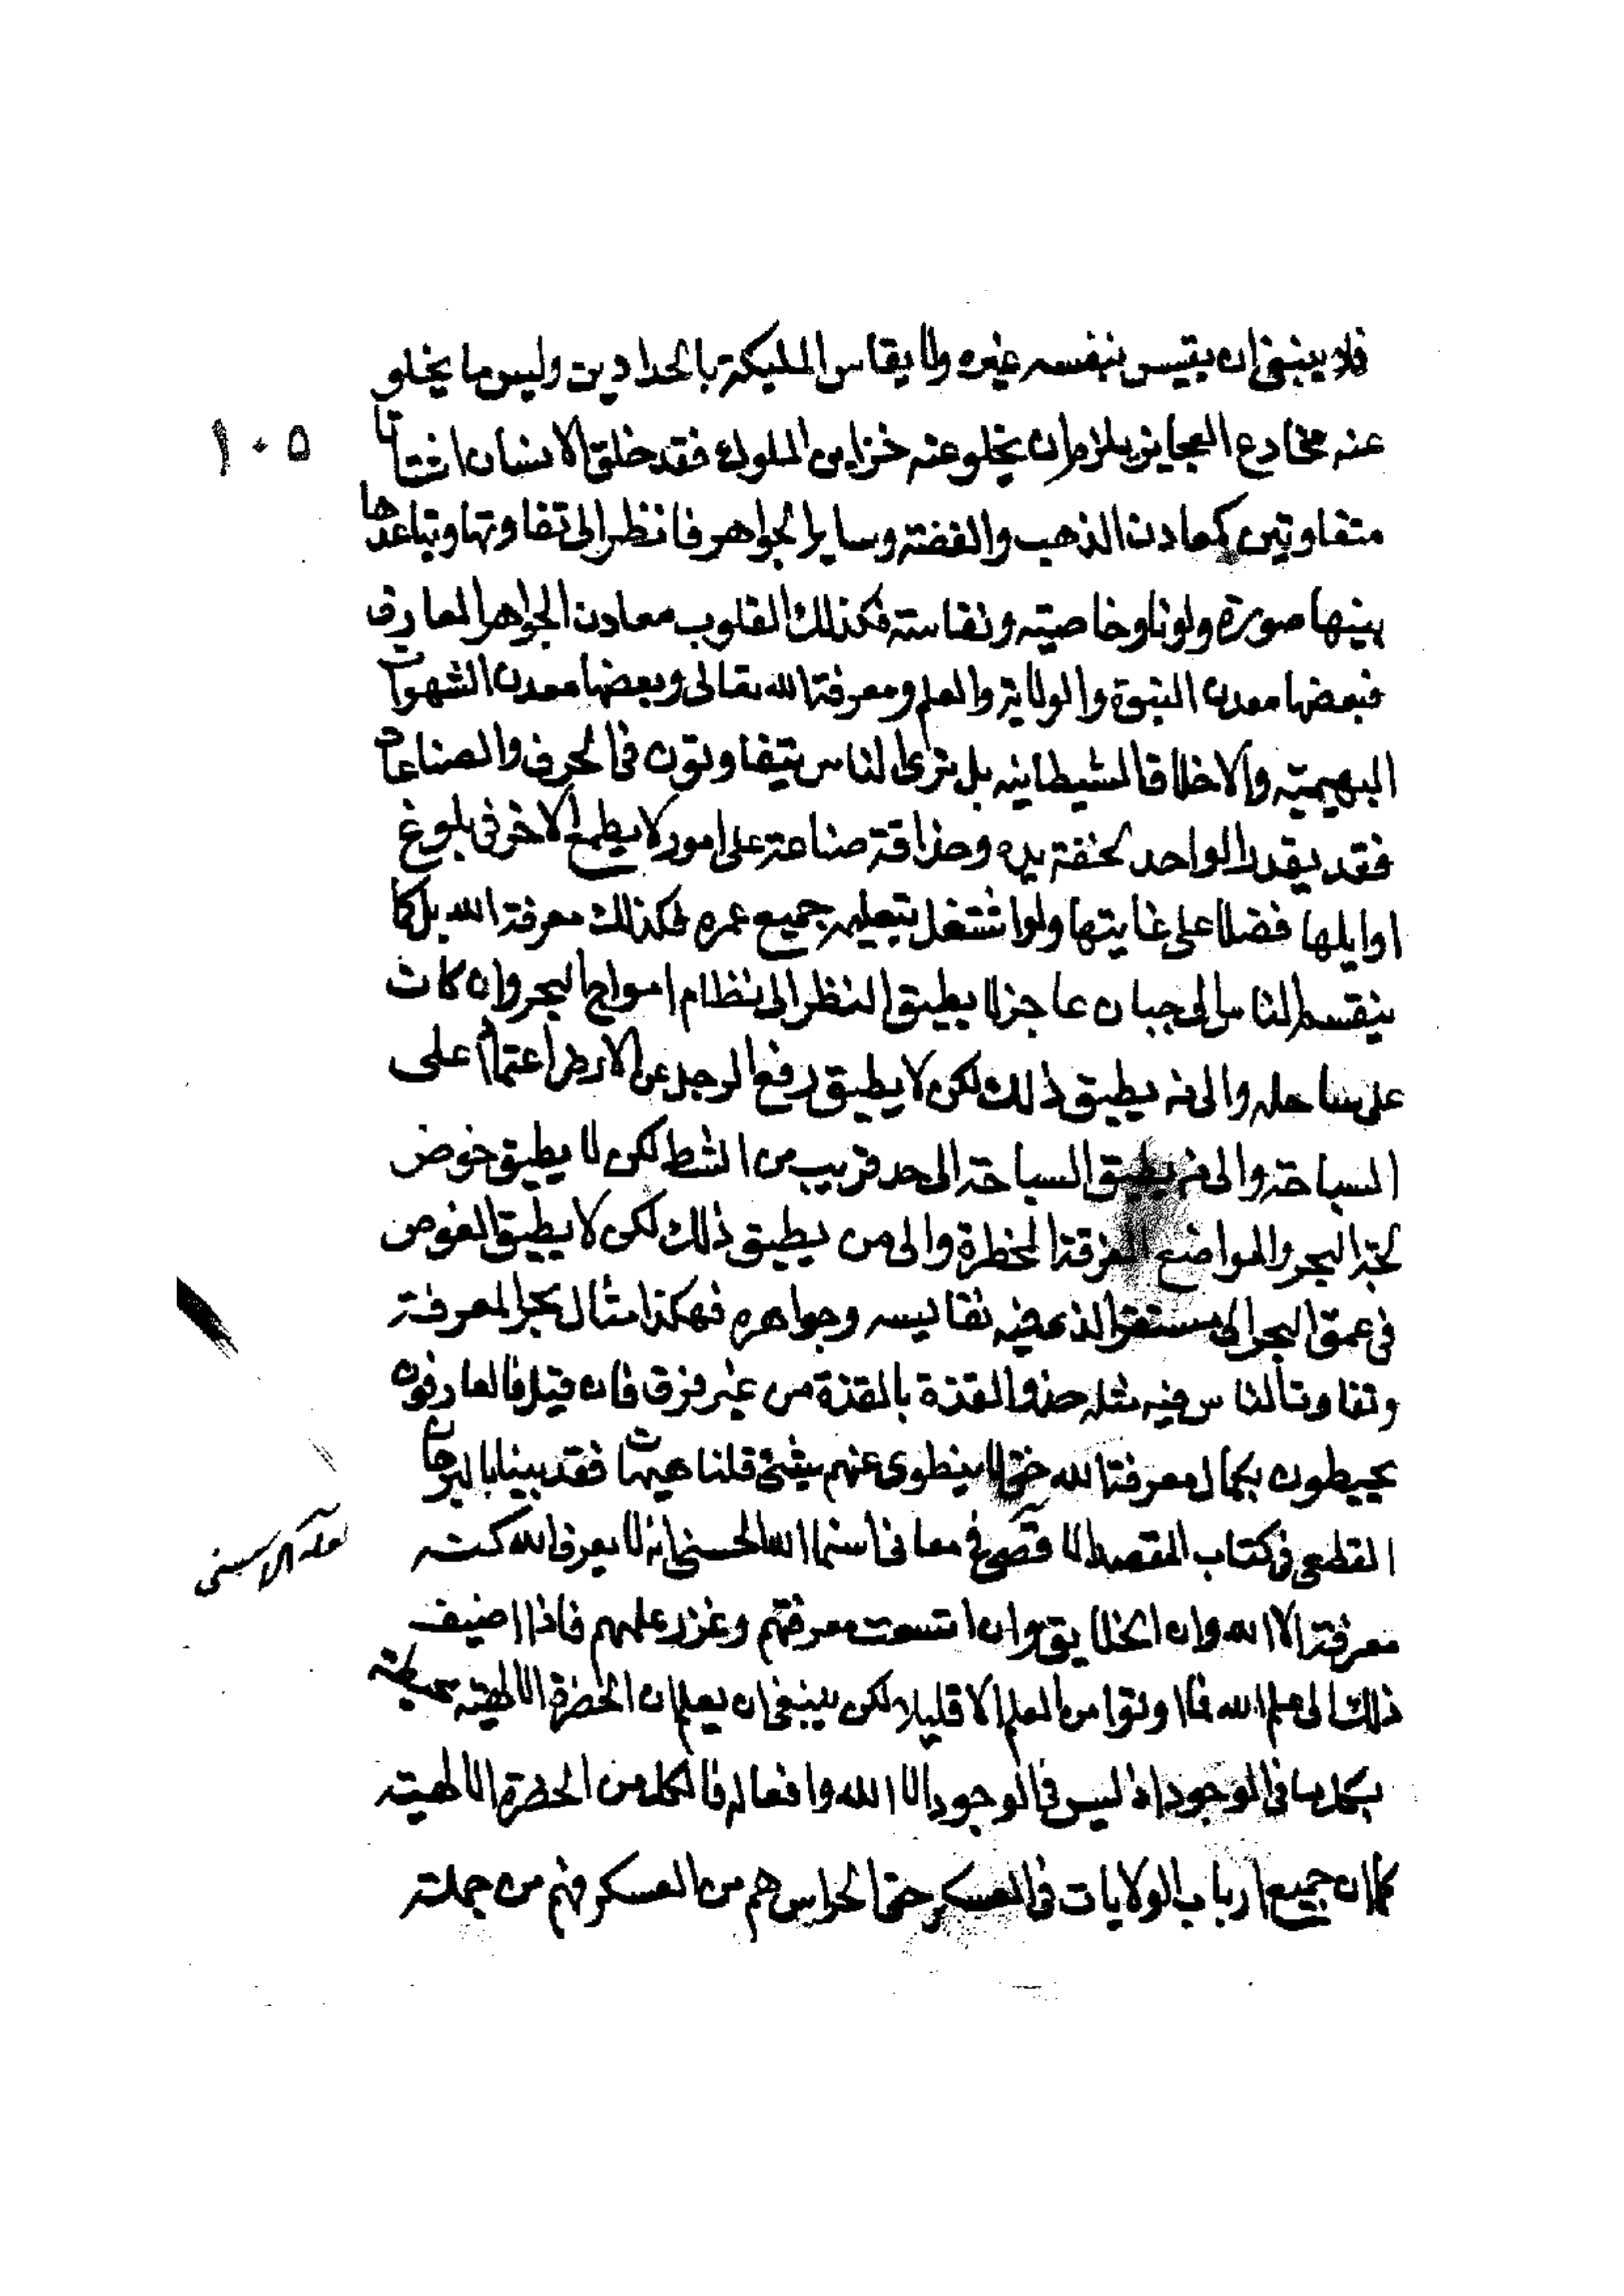 فلا ينبغي ان يقيس بنفسه غيره ولا يقاس المليكة بالحدادين وليس ما يخلو
١٠٥
عنه مخادع العجايز يلزم ان يخلو عنه خزاين الملوك فقد خلق الانسان اشتاتا
متفاوتين كمعادن الذهب والفضة وساير الجواهر فانظر الى تفاوتها وتباعدها
بينها صورة ولونا وخاصية ونفاسة فكذلك القلوب معادن الجواهر المعارف
فبعضها معدن النبوة والولاية والعلم ومعرفة الله تعالى وبعضها معدن الشهوات
البهيمية والاخلاق الشيطانيه بل ترى الناس يتفاوتون في الحرف والصناعات
فقد يقدر الواحد لخفة يده وحذاقة صناعة على امور لا يطمع الاخر في بلوغ
اوايلها فضلا على غايتها ولو اشتغل بتعليم جميع عمره فكذلك معرفة الله بل كما
ينقسم الناس الى جبان عاجز لا يطيق النظر الى نظام امواج البحر وان كان
على ساحله والى من يطيق ذلك لكن لا يطيق رفع الرجل عن الارض اعتمادا على
السباحة والى من يطيق السباحة الى حد قريب من الشط لكن لا يطيق خوض
لجة البحر والمواضع المغرقة المخطرة والى من يطيق ذلك لكن لا يطيق الغوص
في عمق البحر الى مستقره الذي فيه نفايسه وجواهره فهكذا مثال بحر المعرفة
وتفاوت الناس فيه مثله حذو القذة بالقذة من غير فرق فان قيل فالعارفون
يحيطون بكمال معرفة الله حتى لا ينطوي عنهم شيئ قلنا هيهات فقد بينا بالبرهان
القطعي في كتاب المقصد الاقصى في معاني اسما الله الحسنى انه لا يعرف الله كنه
معرفته الا الله وان الخلايق وان اتسعت معرفتهم وغزر علمهم فاذا اضيف
ذلك الى علم الله فما اوتوا من العلم الا قليلا لكن ينبغي ان يعلم ان الحضرة الالهية محيطة
بكل ما في الوجود اذ ليس في الوجود الا الله وافعاله فالكل من الحضرة الالهية
كما ان جميع ارباب الولايات في العسكر حتى الحراس هم من العسكر فهم من جملة